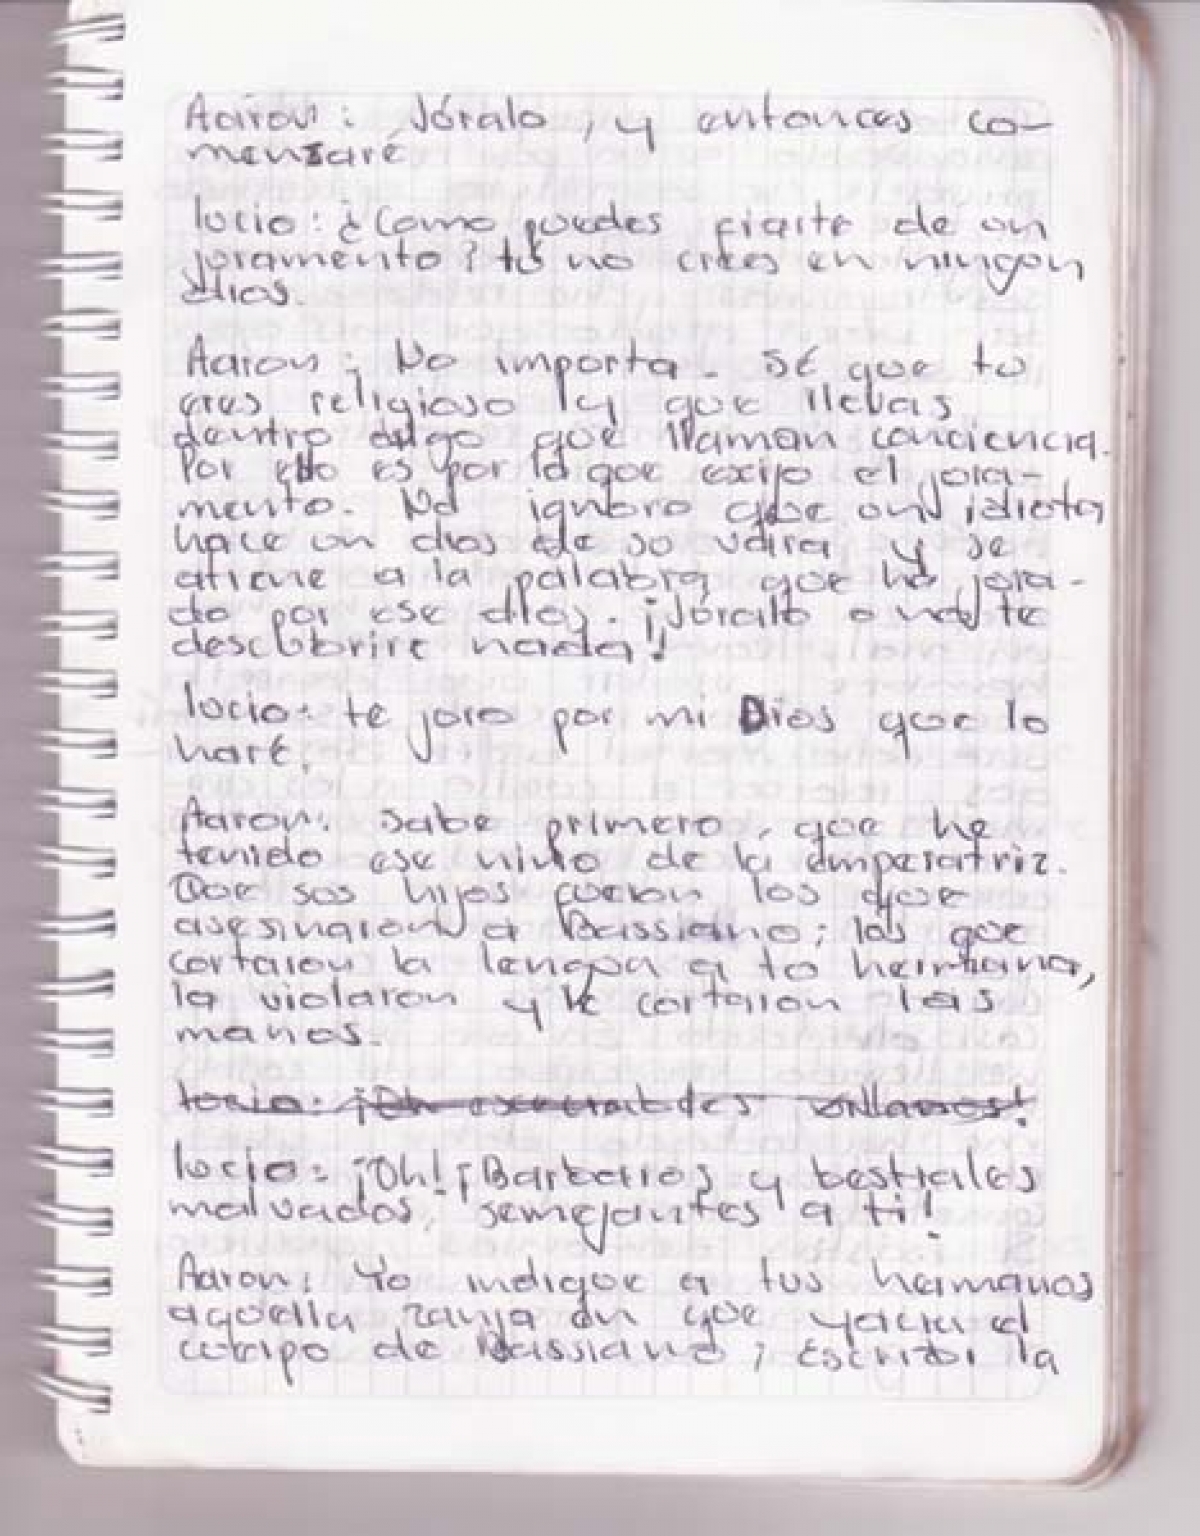 Aaron: Júralo, y entonces co-
menzaré
lucio: ¿Como puedes fiarte de un
juramento? tú no crees en ningun
dios.
Aaron: No importa. Sé que tu
eres religioso y que llevas
dentro algo que llaman conciencia.
Por ello es por lo que exijo el jura-
mento. No ignoro que un idiota
hace un dios de su vara y se
atiene a la palabra que ha jura-
do por ese dios. ¡Júralo o no te
descubrire nada!
lucio: te juro por mi Dios que lo
haré.
Aaron: sabe primero, que he
tenido ese niño de la emperatriz.
Que sus hijos fueron los que
asesinaron a Bassiano; los que
cortaron la lengua a tu hermana,
la violaron y le cortaron las
manos.
lucio: ¡Oh villanos!
lucio: ¡Oh! ¡Barbaros y bestiales
malvados, semejantes a ti!
Aaron: Yo indique a tus hermanos
aquella zanja en que yacia el
cuerpo de Bassiano; Escribi la